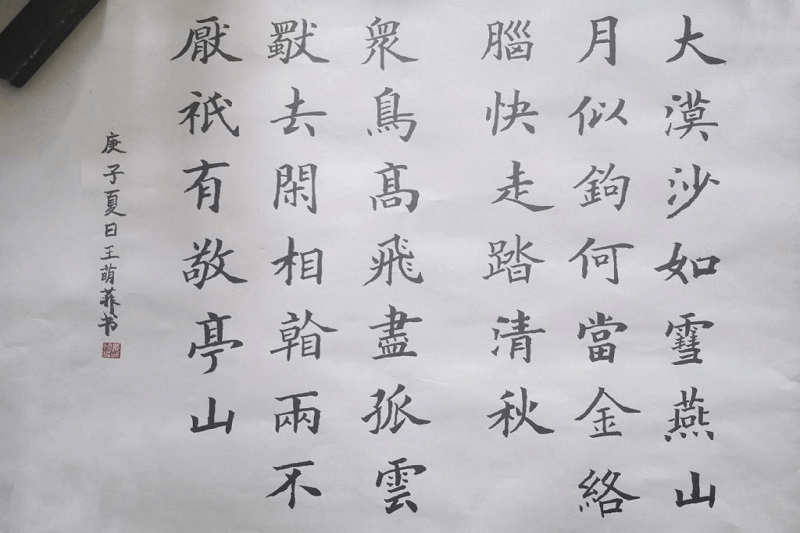 大漠沙如雪燕山
月似鉤何當金絡
腦快走踏清秋
眾鳥髙飛盡孤雲
獨去閑相䀎兩不
厭祇有敬亭山
庚子夏日王萌菲书